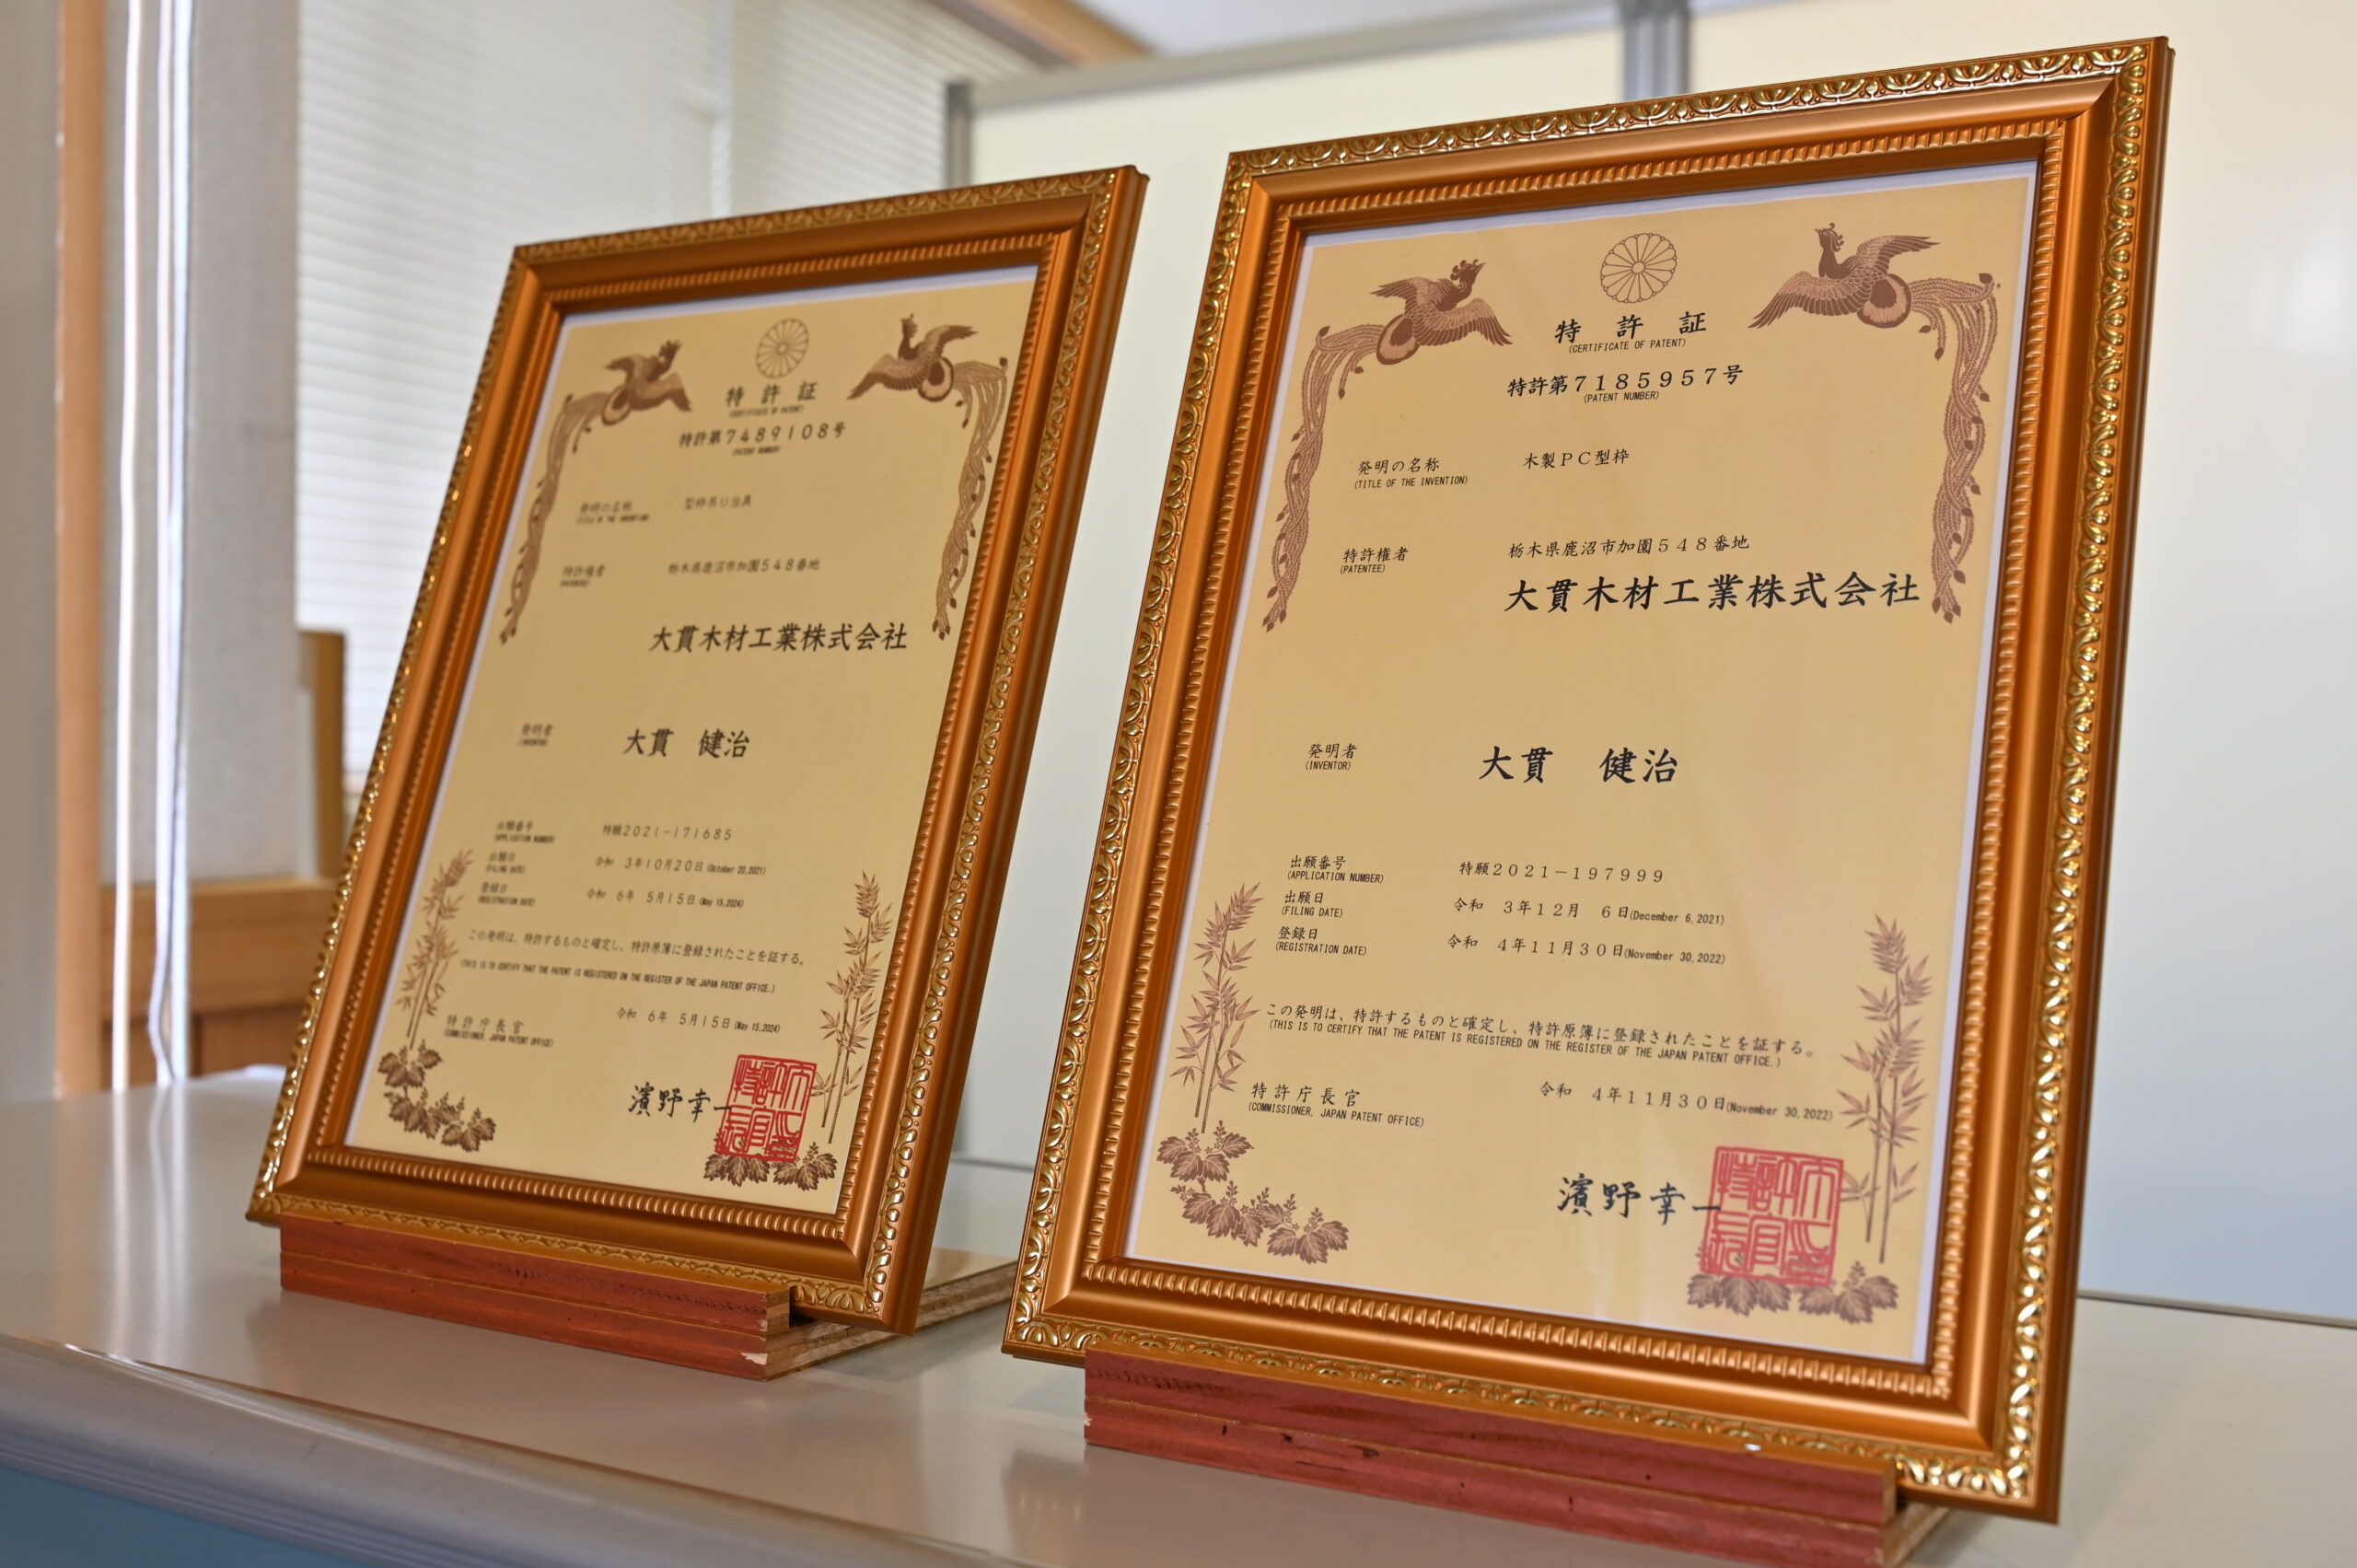 特許証
(CERTIFICATE OF PATENT)
特許第7489108号
(PATENT NUMBER)
発明の名称
(TITLE OF THE INVENTION)
型枠吊り治具
特許権者
(PATENTEE)
栃木県鹿沼市加園548番地
大貫木材工業株式会社
発明者
(INVENTOR)
大貫 健治
出願番号
(APPLICATION NUMBER)
特願2021-171685
出願日
(FILING DATE)
令和 3年10月20日(October 20,2021)
登録日
(REGISTRATION DATE)
令和 6年 5月15日(May 15,2024)
この発明は、特許するものと確定し、特許原簿に登録されたことを証する。
(THIS IS TO CERTIFY THAT THE PATENT IS REGISTERED ON THE REGISTER OF THE JAPAN PATENT OFFICE.)
令和 6年 5月15日(May 15,2024)
特許庁長官
(COMMISSIONER, JAPAN PATENT OFFICE)
濱野幸一
特許庁長官之印
特許証
(CERTIFICATE OF PATENT)
特許第7185957号
(PATENT NUMBER)
発明の名称
(TITLE OF THE INVENTION)
木製PC型枠
特許権者
(PATENTEE)
栃木県鹿沼市加園548番地
大貫木材工業株式会社
発明者
(INVENTOR)
大貫 健治
出願番号
(APPLICATION NUMBER)
特願2021-197999
出願日
(FILING DATE)
令和 3年12月 6日(December 6,2021)
登録日
(REGISTRATION DATE)
令和 4年11月30日(November 30,2022)
この発明は、特許するものと確定し、特許原簿に登録されたことを証する。
(THIS IS TO CERTIFY THAT THE PATENT IS REGISTERED ON THE REGISTER OF THE JAPAN PATENT OFFICE.)
令和 4年11月30日(November 30,2022)
特許庁長官
(COMMISSIONER, JAPAN PATENT OFFICE)
濱野幸一
特許庁長官之印